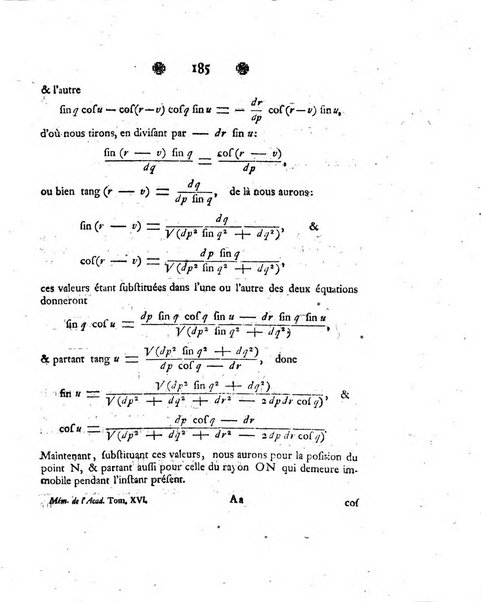 185
& l'autre
ſin q coſ u — coſ (r — v) coſ q ſin u = — dr/dp coſ (r — v) ſin u,
d'où nous tirons, en diviſant par — dr ſin u:
ſin (r — v) ſin q / dq = coſ (r — v) / dp,
ou bien tang (r — v) = dq / dp ſin q, de là nous aurons:
ſin (r — v) = dq / V(dp² ſin q² + dq²), &
coſ (r — v) = dp ſin q / V(dp² ſin q² + dq²),
ces valeurs étant ſubſtituées dans l'une ou l'autre des deux équations
donneront
ſin q coſ u = dp ſin q coſ q ſin u — dr ſin q ſin u / V(dp² ſin q² + dq²),
& partant tang u = V(dp² ſin q² + dq²) / dp coſ q — dr, donc
ſin u = V(dp² ſin q² + dq²) / V(dp² + dq² + dr² — 2 dp dr coſ q), &
coſ u = dp coſ q — dr / V(dp² + dq² + dr² — 2 dp dr coſ q).
Maintenant, ſubſtituant ces valeurs, nous aurons pour la poſition du
point N, & partant auſſi pour celle du rayon ON qui demeure im-
mobile pendant l'inſtant préſent.
Mém. de l'Acad. Tom. XVI. Aa coſ